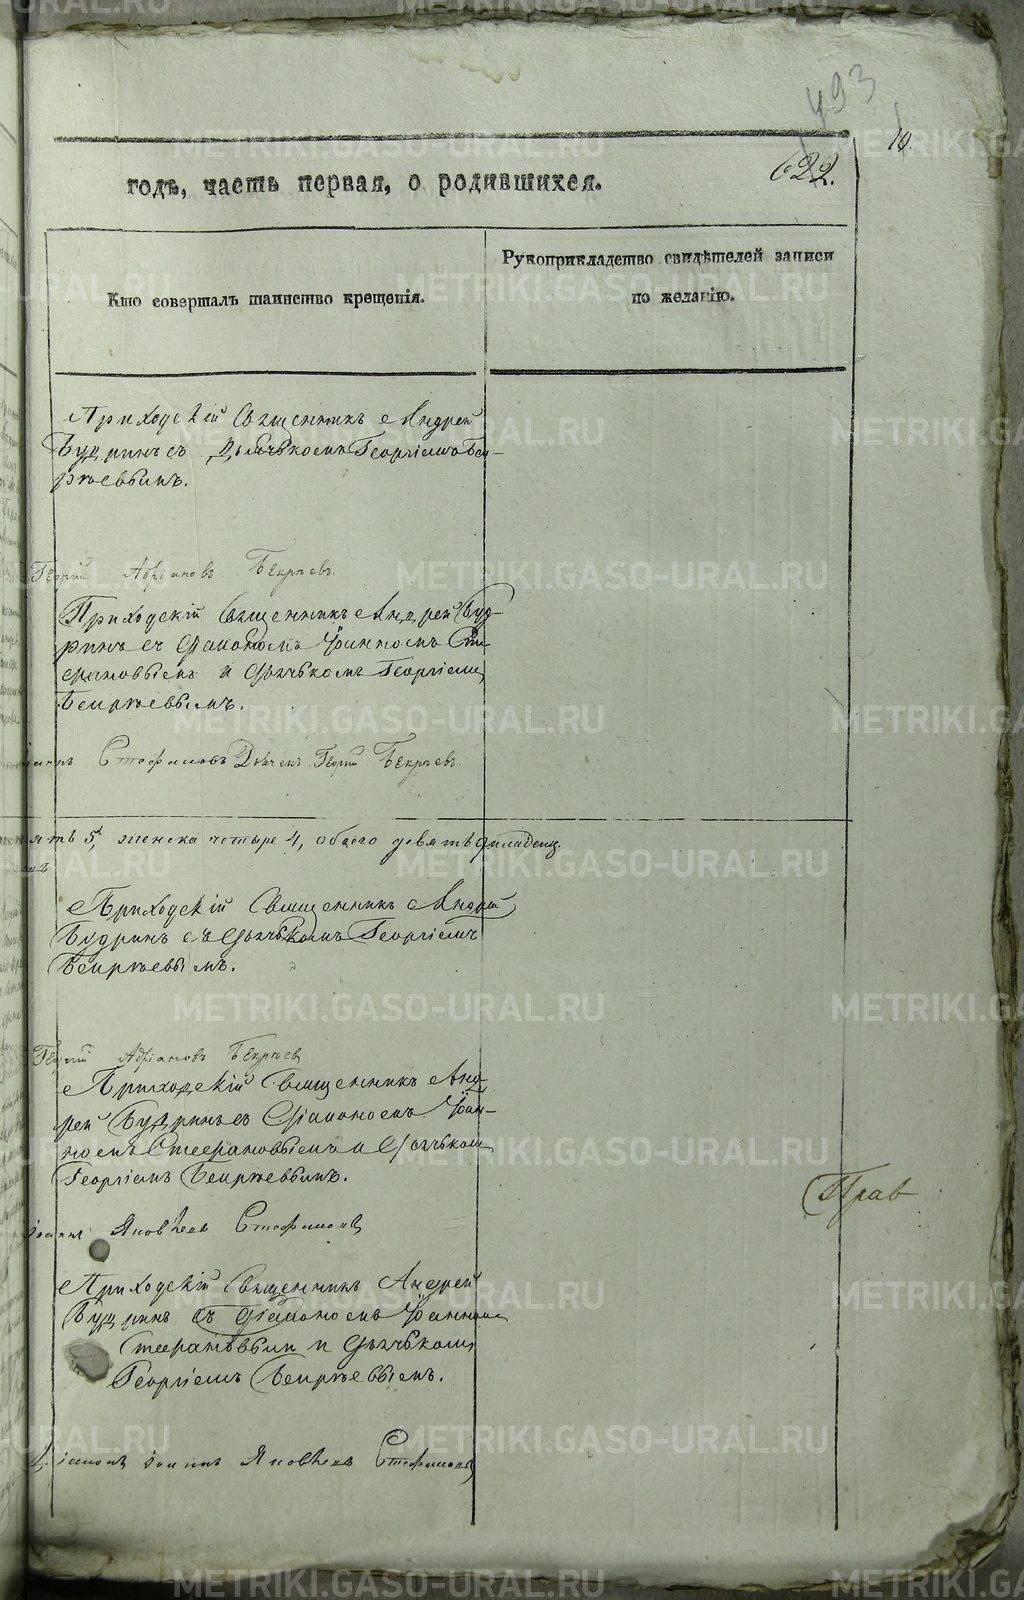 493
10.
622.
годъ, часть первая, о родившихся.
Кто совершалъ таинство крещенія.
Рукоприкладство свидѣтелей записи
по желанію.
Приходскій Священникъ Андрей
Будринъ съ Дьячькомъ Георгіемъ Бек-
рѣевымъ.
Георгій Адріановъ Бекрѣевъ.
Приходскій Священникъ Андрей Буд-
ринъ съ Діакономъ Іоанномъ Сте-
фановымъ и Дьячькомъ Георгіемъ
Бекрѣевымъ.
Стефановъ Дьячекъ Георгій Бекрѣевъ.
5, женска четыре 4, обоего девять 9 младенц.
Приходскій Священникъ Андрей
Будринъ съ Дьячькомъ Георгіемъ
Бекрѣевымъ.
Георгій Адріановъ Бекрѣевъ
Приходскій Священникъ Анд-
рей Будринъ съ Діакономъ Іоан-
номъ Стефановымъ и Дьячькомъ
Георгіемъ Бекрѣевымъ.
Іоаннъ Яковлевъ Стефановъ
Прав
Приходскій Священникъ Андрей
Будринъ съ Діакономъ Іоанномъ
Стефановымъ и Дьячькомъ
Георгіемъ Бекрѣевымъ.
Діаконъ Іоаннъ Яковлевъ Стефановъ
METRIKI.GASO-URAL.RU